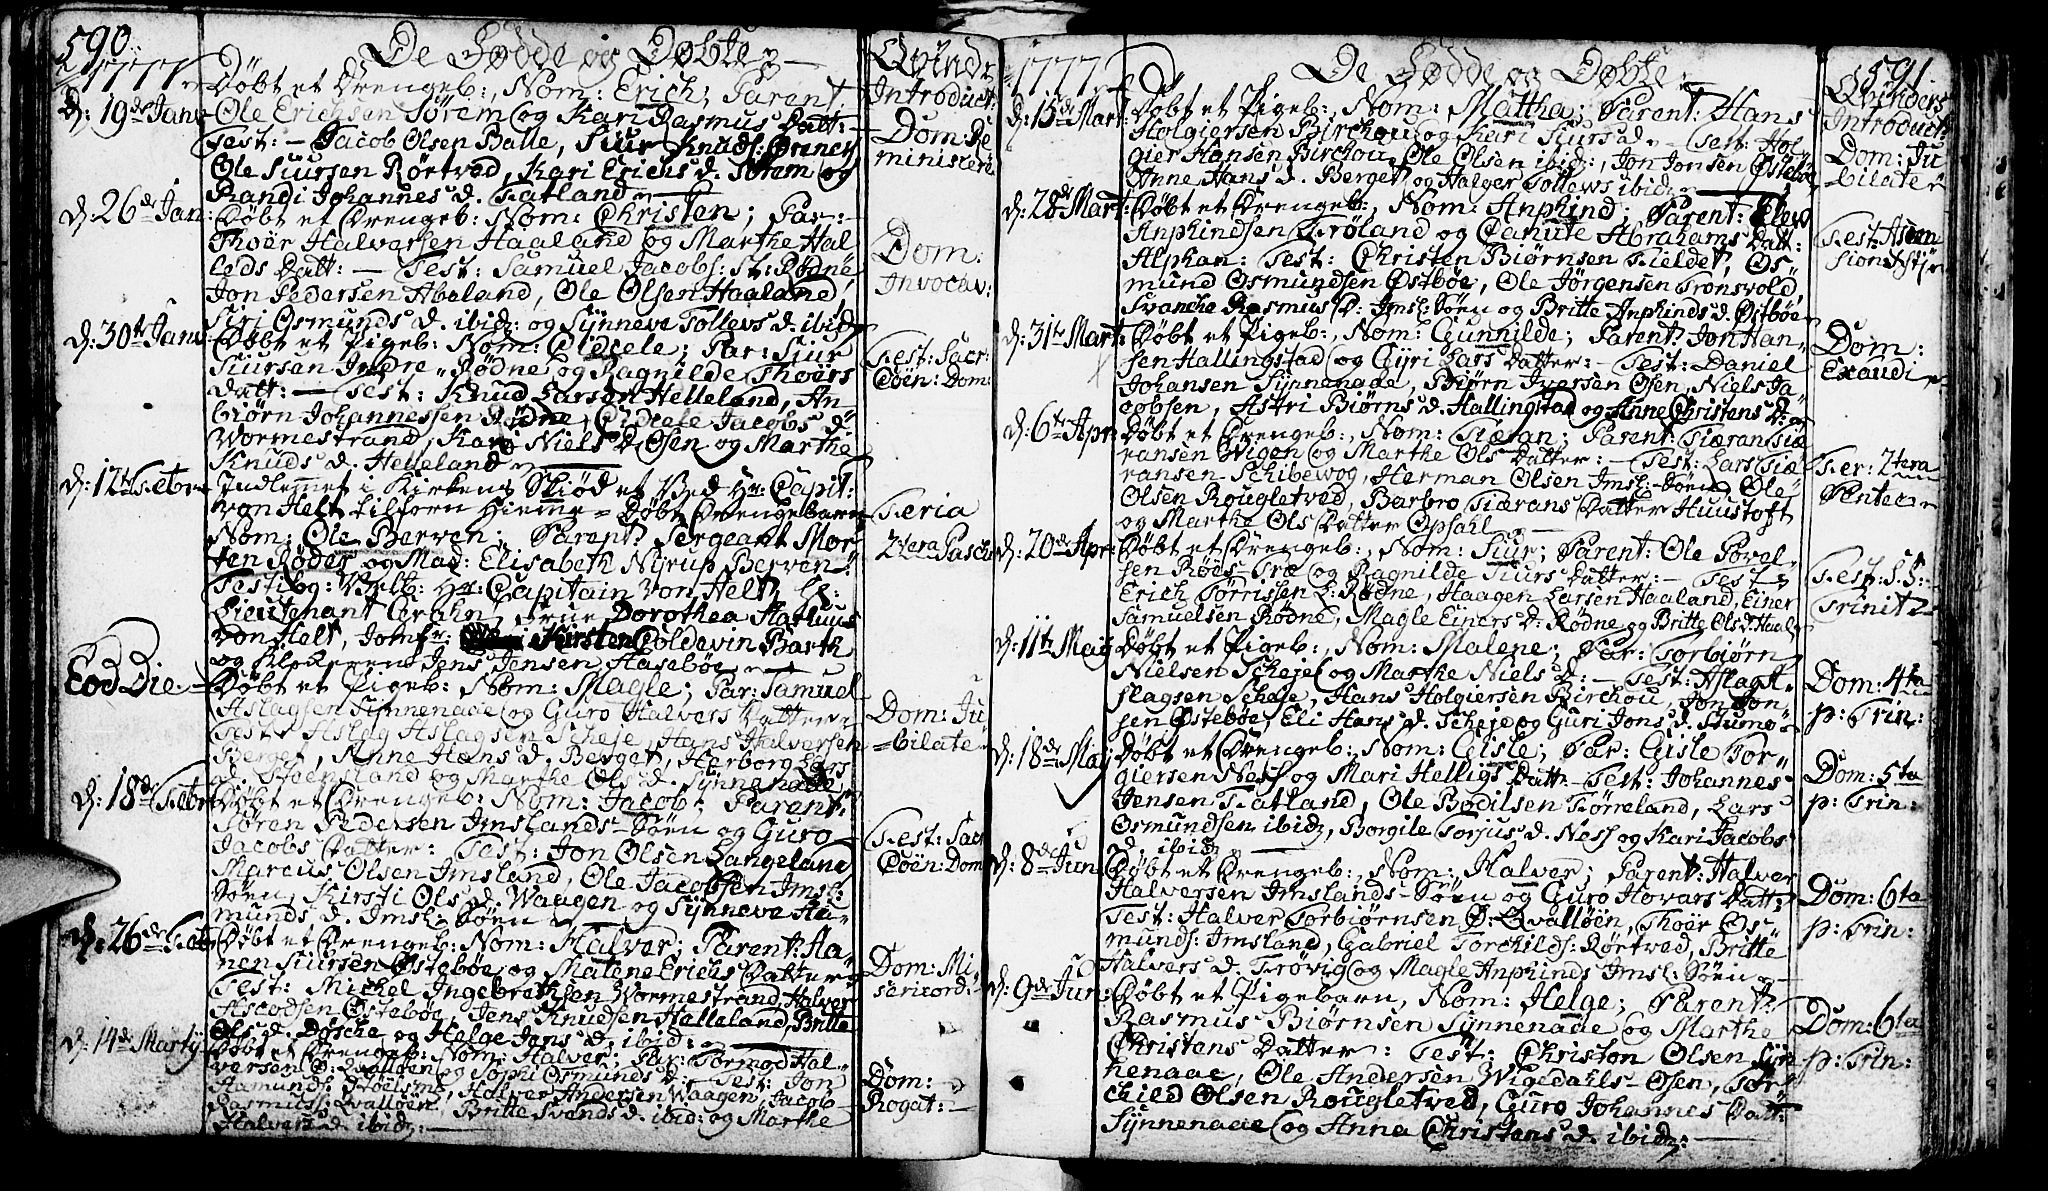 590.
1777
De Fødde og Døbte
Qvind
Introduct:
d: 19de Janv
Døbt et Drengeb:, Nom: Erich; Parent
Ole Erichsen Sørem og Kari Rasmus Datt:
Test: Jacob Olsen Balle, Siur Knuds:
Ole Siursen Rörtved, Kari Erichs d. Sørem og
Randi Johannes d. Tatland
Dom: Re
miniscere
d: 26de Jan:
Døbt et Drengeb: Nom: Christen; Par:
Thoer Halversen Haaland og Marthe Hal
Datt: Test: Samuel Jacobs: St: Rödne
Jon Pedersen Abeland, Ole Olsen Haaland,
Siri Osmunds d. ibid: og Synneve Tollevs d. ibid
Dom:
Invocav:
d: 30te Janv
Døbt et Pigeb: Nom: Cidcele; Par: Siur
Siursen Indre Rødne og Ragnilde Thoers
Datt: Test: Knud Larsen Helleland, An-
biörn Johannessen Rödne, Cidcele Jacobs d.
Wormestrand, Kari Niels d. Osen og Marthe
Knuds d. Helleland
Fest: Sacr:
Coën: Dom:
d: 12te Febr
Indlemmet i Kirkens Skiød et Ved Hr: Capit:
von Helt tilforn Hieme Døbt Drengebarn
Nom: Ole Berven; Parent: Sergeant Mor
ten Röder og Mad: Elisabeth Nyrup Berven
Test: Hr: Capitain von Helt, Hr:
Lieutenant Crahn, Frue Dorothea Harhuus
von Helt, Jomfr: Kirsten Coldevin Barth
og Klokkeren Jens Jensen Hasebøe
Feria
2tera Pasch
Eod Die
Døbt et Pigeb: Nom: Magle; Par: Samuel
Aslagsen Synnenaae og Guro Halvers Datter
Test: Aslag Aslagsen Scheie, Hans Halversen
Berget, Anne Hans d. Berget, Herborg Lars
d. Stoensland og Marthe Ols d. Synnenaae
Dom: Ju
bilate
d: 18de Febr
Døbt et Drengeb: Nom: Jacob; Parent:
Søren Pedersen Imslands-Søen og Guro
Jacobs Datter: Test: Jon Olsen Langeland
Marcus Olsen Imsland, Ole Jacobsen Imsl:
Søen, Kirsti Ols d. Waagen og Synneve Aa-
munds d. Imsl: Søen
Fest: Sacr
Coën: Dom
d: 26de Febr
Døbt et Drengeb: Nom: Halver; Parent: Aa-
nen Siursen Østebøe og Malene Erichs Datter
Test: Michel Ingebrethsen Wormestrand, Halver
Ascodsen Østebøe, Jens Knudsen Helleland, Britte
Ols d. Døsche og Helge Jons d. ibid:
Dom: Mi
sericord:
d: 14de Martÿ
Døbt et Drengeb: Nom: Halver; Par: Tormod Hal-
versen Ø: Qvalløen og Sophi Osmunds d: Test: Jon
Aamunds: Halver Andersen Waagen, Jacob
Rasmuss: Qvalløen, Britte Svends d. ibid: og Marthe
Halvers d. ibid:
Dom:
Rogat:
1777
De Fødde og Døbte
591.
Qvinders
Introduct:
d: 15de Mart:
Døbt et Pigeb:, Nom: Mattha; Parent: Hans
Holgiersen Birchou og Kari Siurs d. Test: Hol
gier Hansen Birchou, Ole Olsen ibid:, Jon Jonsen Østebøe
Anne Hans d. Berget og Halger Tollevs ibid:
Dom: Ju
bilate
d: 28de Mart:
Døbt et Drengeb:, Nom: Anphind; Parent: Elev
Anphindsen Trøland og Canute Abrahams Datt:
Alphan: Test: Christen Biörnsen Tieldet, Os-
mund Osmundsen Østbøe, Ole Jörgensen Tronsvold
Svanche Rasmus D: Imsl: Søen og Britte Anphinds d. Østbøe
Fest: Ascen
sionis
d: 31te Mart:
Døbt et Pigeb:, Nom: Gunnilde; Parent: Jon Han-
sen Hallingstad og Gyri Lars Datter: Test: Daniel
Johansen Synnenaae, Biørn Iversen Osen, Niels Ja-
cobsen, Astri Biørns d. Hallingstad og Anne Christens d.
Dom:
Exaudi
d: 6te Apr:
Døbt et Drengeb:, Nom: Tiæran; Parent: Tiæran Tiæ
ransen Wigen og Marthe Ols Datter: Test: Lars Tiæ
ransen Schibewog, Herman Olsen Imsl: Søen, Ole
Olsen Rougletved, Barbro Tiærans Datter Huustoft
og Marthe Ols Datter Opsahl
Fer: 2tera
Pentec
d: 20de Apr:
Døbt et Drengeb:, Nom: Siur; Parent: Ole Povel-
sen Röes Træ og Ragnilde Siurs Datter: Test:
Erich Törrissen L: Rødne, Haagen Larsen Haaland, Einer
Samuelsen Rødne, Magle Einers d: Rødne og Britte Ols d: Haal
Fest: S. S:
Trinit:
d: 11te Maÿ
Døbt et Pigeb:, Nom: Malene; Par: Torbiørn
Nielsen Scheje og Marthe Niels d: Test: Aslag A-
slagsen Scheje, Hans Holgiersen Birchou, Jon Jon-
sen Østebøe, Eli Hans d. Scheje og Guri Jons d.
Dom: 4ta
p: Trin:
d: 18de Maÿ
Døbt et Drengeb:, Nom: Gisle; Par: Gisle Tor-
giersen Ness og Mari Helligs Datt: Test: Johannes
Jensen Tatland, Ole Bodilsen Tiørreland, Lars
Osmundsen ibid:, Borgile Torjus d. Ness og Kari Jacobs
d. ibid:
Dom: 5ta
p: Trin:
d: 8de Jun
Døbt et Drengeb:, Nom: Halver; Parent: Halver
Halversen Imslands-Søen og Guro Hovars Datt:
Test: Halver Torbiørnsen Ø: Qvalløen, Thoer Os-
munds: Imsland, Gabriel Torchilds: Rørtved, Britte
Halvers d. Trøvig og Magle Anphinds Imsl: Søen
Dom: 6ta
p: Trin:
d: 9de Jun:
Døbt et Pigebarn, Nom: Helge; Parent:
Rasmus Biørnsen Synnenaae og Marthe
Christens Datter: Test: Christen Olsen Syn
nenaae, Ole Andersen Wigedahls-Osen, Tor
child Olsen Rougletved, Guro Johannes Datt:
Synnenaae og Anna Christens d. ibid:
Dom: 6ta
p: Trin: